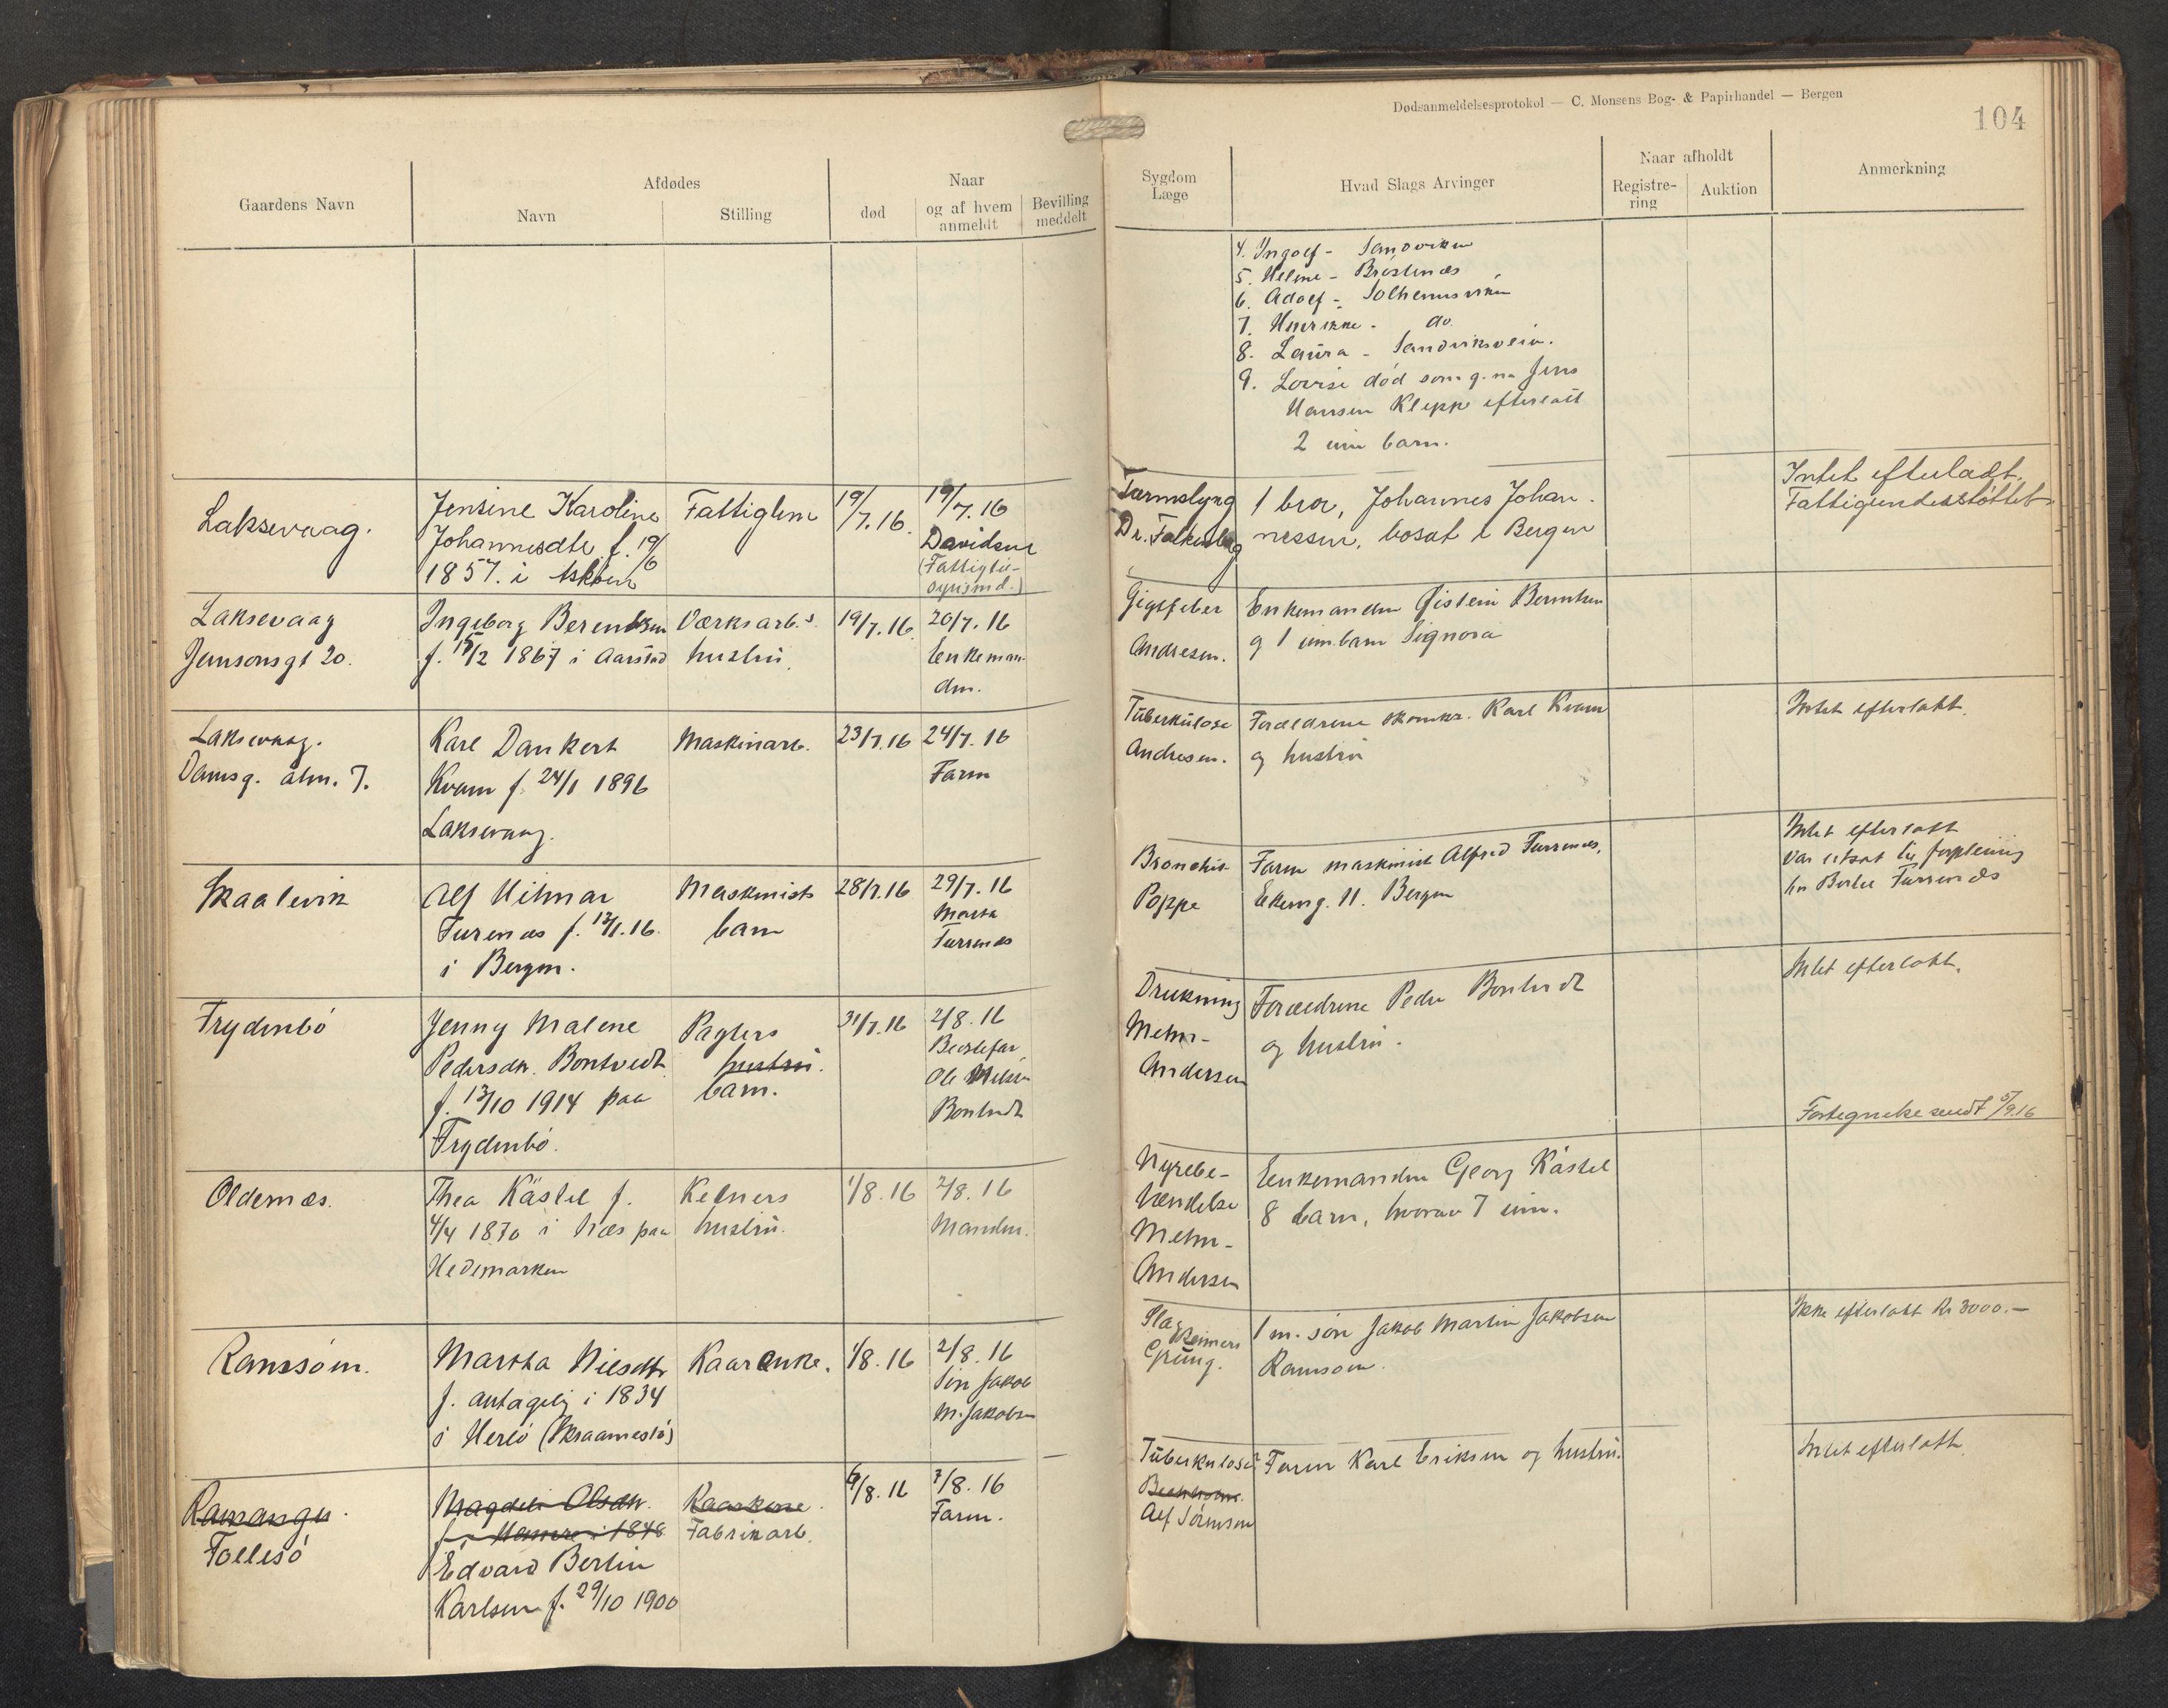 Dødsanmeldelsesprotokol — C. Monsens Bog- & Papirhandel — Bergen
104
Gaardens Navn
Afdødes
Navn
Stilling
Naar
død
og af hvem anmeldt
Bevilling meddelt
Sygdom
Læge
Hvad Slags Arvinger
Naar afholdt
Registre-
ring
Auktion
Anmerkning
4. Ingolf - Sandviken
5. Helene - Bróstenæs
6. Adolf - Solheimsviken
7. Henrikke - do.
8. Laura - Sandviksvein.
9. Lovise død som g. m. Jens
Hansen Kleppe efterlatt
2 um barn.
Laksevaag.
Jensine Karoline
Johannesdtr f. 19/6
1857. i Askøen
Fattiglem
19/7.16.
19/7.16
Davidsen
(Fattigtil-
synsmd.)
Tarmslyng
Dr. Falkenberg
1 bror, Johannes Johan-
nessen, bosat i Bergen
Intet efterladt.
Fattigunderstøttet
Laksevaag
Jensensgt 20.
Ingeborg Berentsen
f. 15/2 1867 i Aarstad
Værksarb.s
hustru.
19/7.16.
20/7.16
Enkeman-
den.
Gigtfeber
Andresen.
Enkemanden Øistein Berntsen
og 1 um. barn Signora
Laksevaag.
Damsg. alm. 7.
Karl Dankert
Kvam f. 24/1 1896
Laksevaag.
Maskinarb.
23/7.16
24/7.16
Faren
Tuberkulose
Andresen.
Foreldrene skomkr. Karl Kvam
og hustru
Intet efterlatt.
Skaalevik
Alf Hilmar
Furenæs f. 12/1.16.
i Bergen.
Maskinists
barn
28/7.16
29/7.16
Marta
Furrenæs
Bronchit
Poppe
Faren maskinist Alfred Furrenæs,
Ekreng. 11. Bergen
Intet efterlatt
var utsat til forpleining
hos Bertel Furrenæs
Frydenbó
Jenny Malene
Pedersdtr. Bontvedt
f. 13/10 1914 paa
Frydenbó.
Paglers
hustru.
barn.
31/7.16
2/8.16
Bestefar
Ole Nilsen
Bontvedt
Drukning
Mehn-
Andersen
Foreldrene Peder Bontvedt
og hustru.
Intet efterlatt.
Oldernæs.
Thea Kästel f.
4/4 1870 i Næs paa
Hedemarken
Kelners
hustru.
1/8.16
2/8.16
Manden.
Nyrebe-
tændelse
Mehn-
Andersen
Enkemanden Georg Kästel
8 barn, hvorav 7 um.
Fortegnelse sendt 5/9.16
Ramsóen.
Martha Nilsdtr
f. antagelig i 1834
i Herló (Skraamestó)
Kaarenke.
1/8.16
2/8.16
Són Jakob
M. Jakobsen
Slag
Reimers
Grung.
1 m. són Jakob Martin Jakobsen
Ramsoen.
Ikke efterlatt Kr 3000.—
Ramanger
Follesó
Magdeli Olsdtr.
f. i Hamre i 1848
Edvard Bertin
Karlsen f. 29/10 1900
Kaarkone.
Fabrikarb.
6/8.16
7/8.16
Faren.
Tuberkulose
Alf Sórensen
Faren Karl Eriksen og hustru.
Intet efterlatt